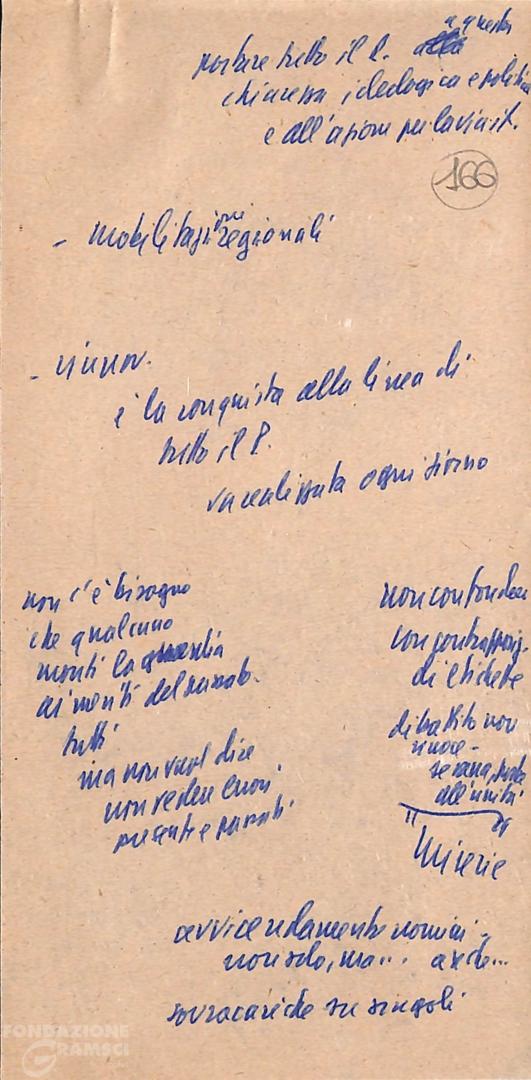 portare tutto il P. a questa
chiarezza ideologica e politica
e all'azione per la via it.
166
- mobilitazioni regionali
- rinnov.
è la conquista alla linea di
tutto il P.
va realizzata ogni giorno
non c'è bisogno
che qualcuno
monti la guardia
ai meriti del passato.
tutti
ma non vuol dire
non vedere errori
presenti e passati
non confondere
con contrappos.
di etichette
dibattito non
nuoce -
se
all'unità
"miserie"
avvicendamento uomini -
non solo, ma... anche...
sovracariche su singoli
FONDAZIONE
GRAMSCI